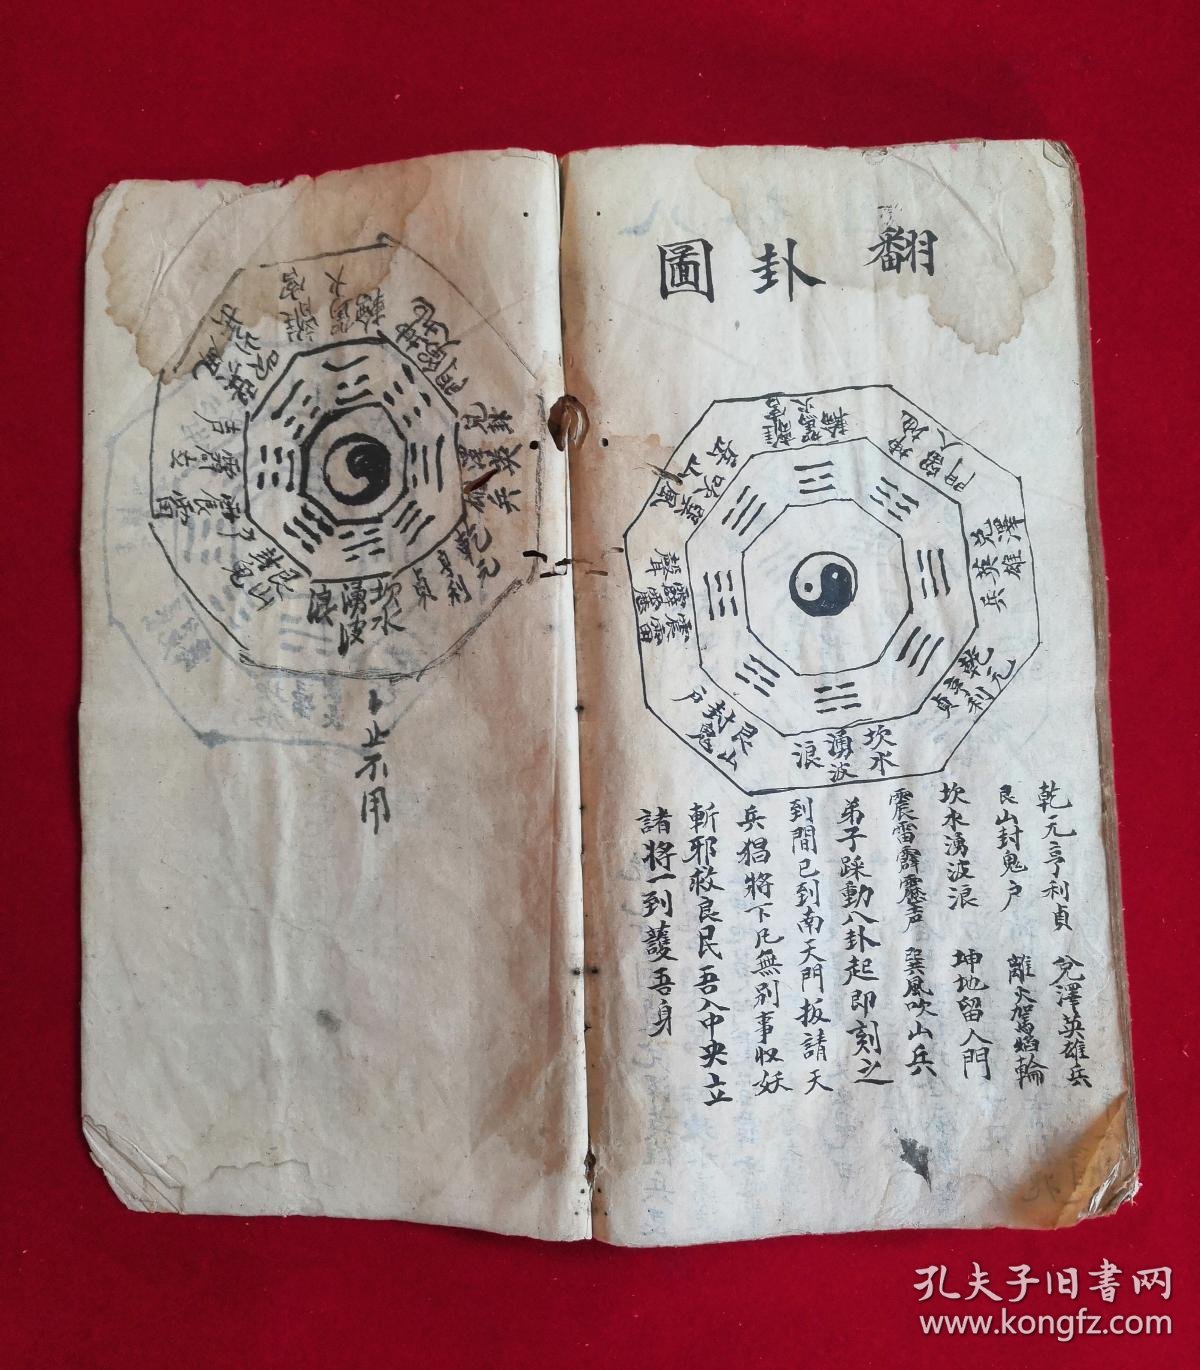 翻卦圖
澤兌
英雄
兵
坤地
留人
門
離宮
駕火
輪
巽風
吹山
兵
震雷
霹靂
聲
艮山
封鬼
户
坎水
湧波
浪
乾元
亨利
貞
乾元亨利貞 兌澤英雄兵
艮山封鬼户 離火駕焰輪
坎水湧波浪 坤地留人門
震雷霹靂声 巽風吹山兵
弟子踩動八卦起即刻之
到間已到南天門扳請天
兵猖將下凡無別事收妖
斬邪救良民吾入中央立
諸將一到護吾身
坤地
留人
門
離宮
駕火
輪
巽風
吹山
兵
震雷
霹靂
声
艮山
封鬼
户
坎水
湧波
浪
乾元
亨利
貞
止示用
孔夫子旧書网
www.kongfz.com